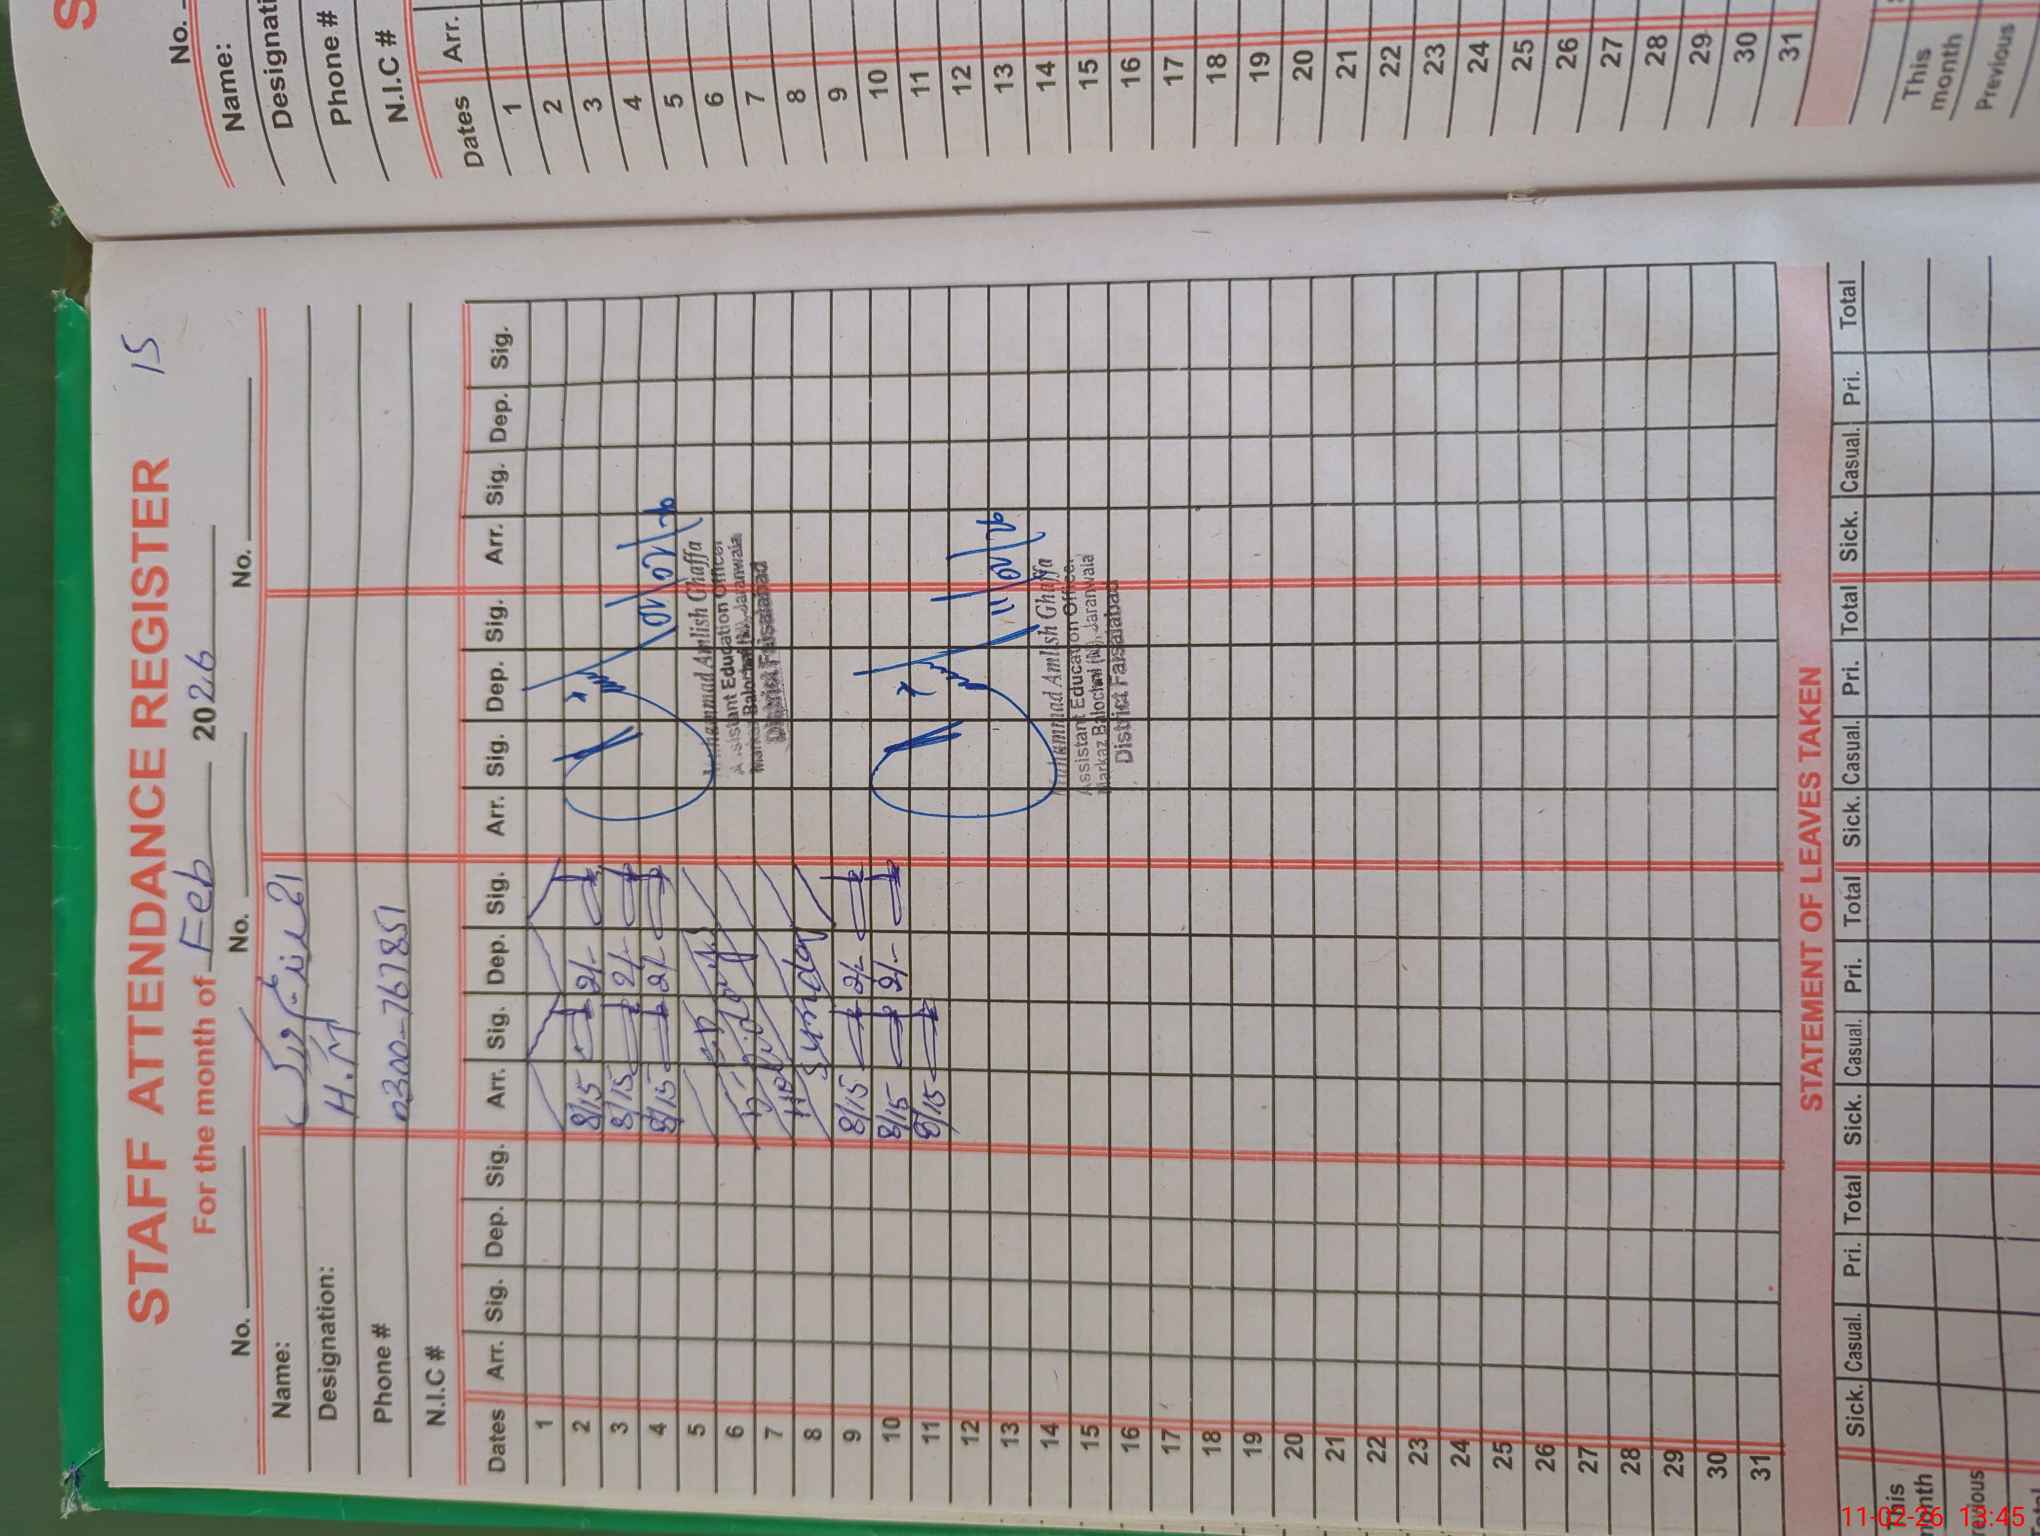 STAFF ATTENDANCE REGISTER 15
For the month of Feb 2026
No. No. No.
Name:
Designation: H.M
Phone # 0300-767851
N.I.C #
Dates Arr. Sig. Dep. Sig. Arr. Sig. Dep. Sig. Arr. Sig. Dep. Sig. Arr. Sig. Dep. Sig.
1
2 8/15 2/-
3 8/15 2/-
4 8/15 2/-
5
6
7 Holiday
8 Sunday
9 8/15 2/-
10 8/15 2/-
11 8/15
12
13
14
15
16
17
18
19
20
21
22
23
24
25
26
27
28
29
30
31
02/02/26
Muhammad Amlish Ghaffa
Assistant Education Officer
Markaz Balochni (W), Jaranwala
District Faisalabad
11/02/26
Muhammad Amlish Ghaffa
Assistant Education Officer.
Markaz Balochni (W), Jaranwala
District Faisalabad
STATEMENT OF LEAVES TAKEN
Sick. Casual. Pri. Total Sick. Casual. Pri. Total Sick. Casual. Pri. Total Sick. Casual. Pri. Total
his
nth
evious
S
No.
Name:
Designati
Phone #
N.I.C #
Dates Arr.
1
2
3
4
5
6
7
8
9
10
11
12
13
14
15
16
17
18
19
20
21
22
23
24
25
26
27
28
29
30
31
This
month
Previous
11-02-26 13:45